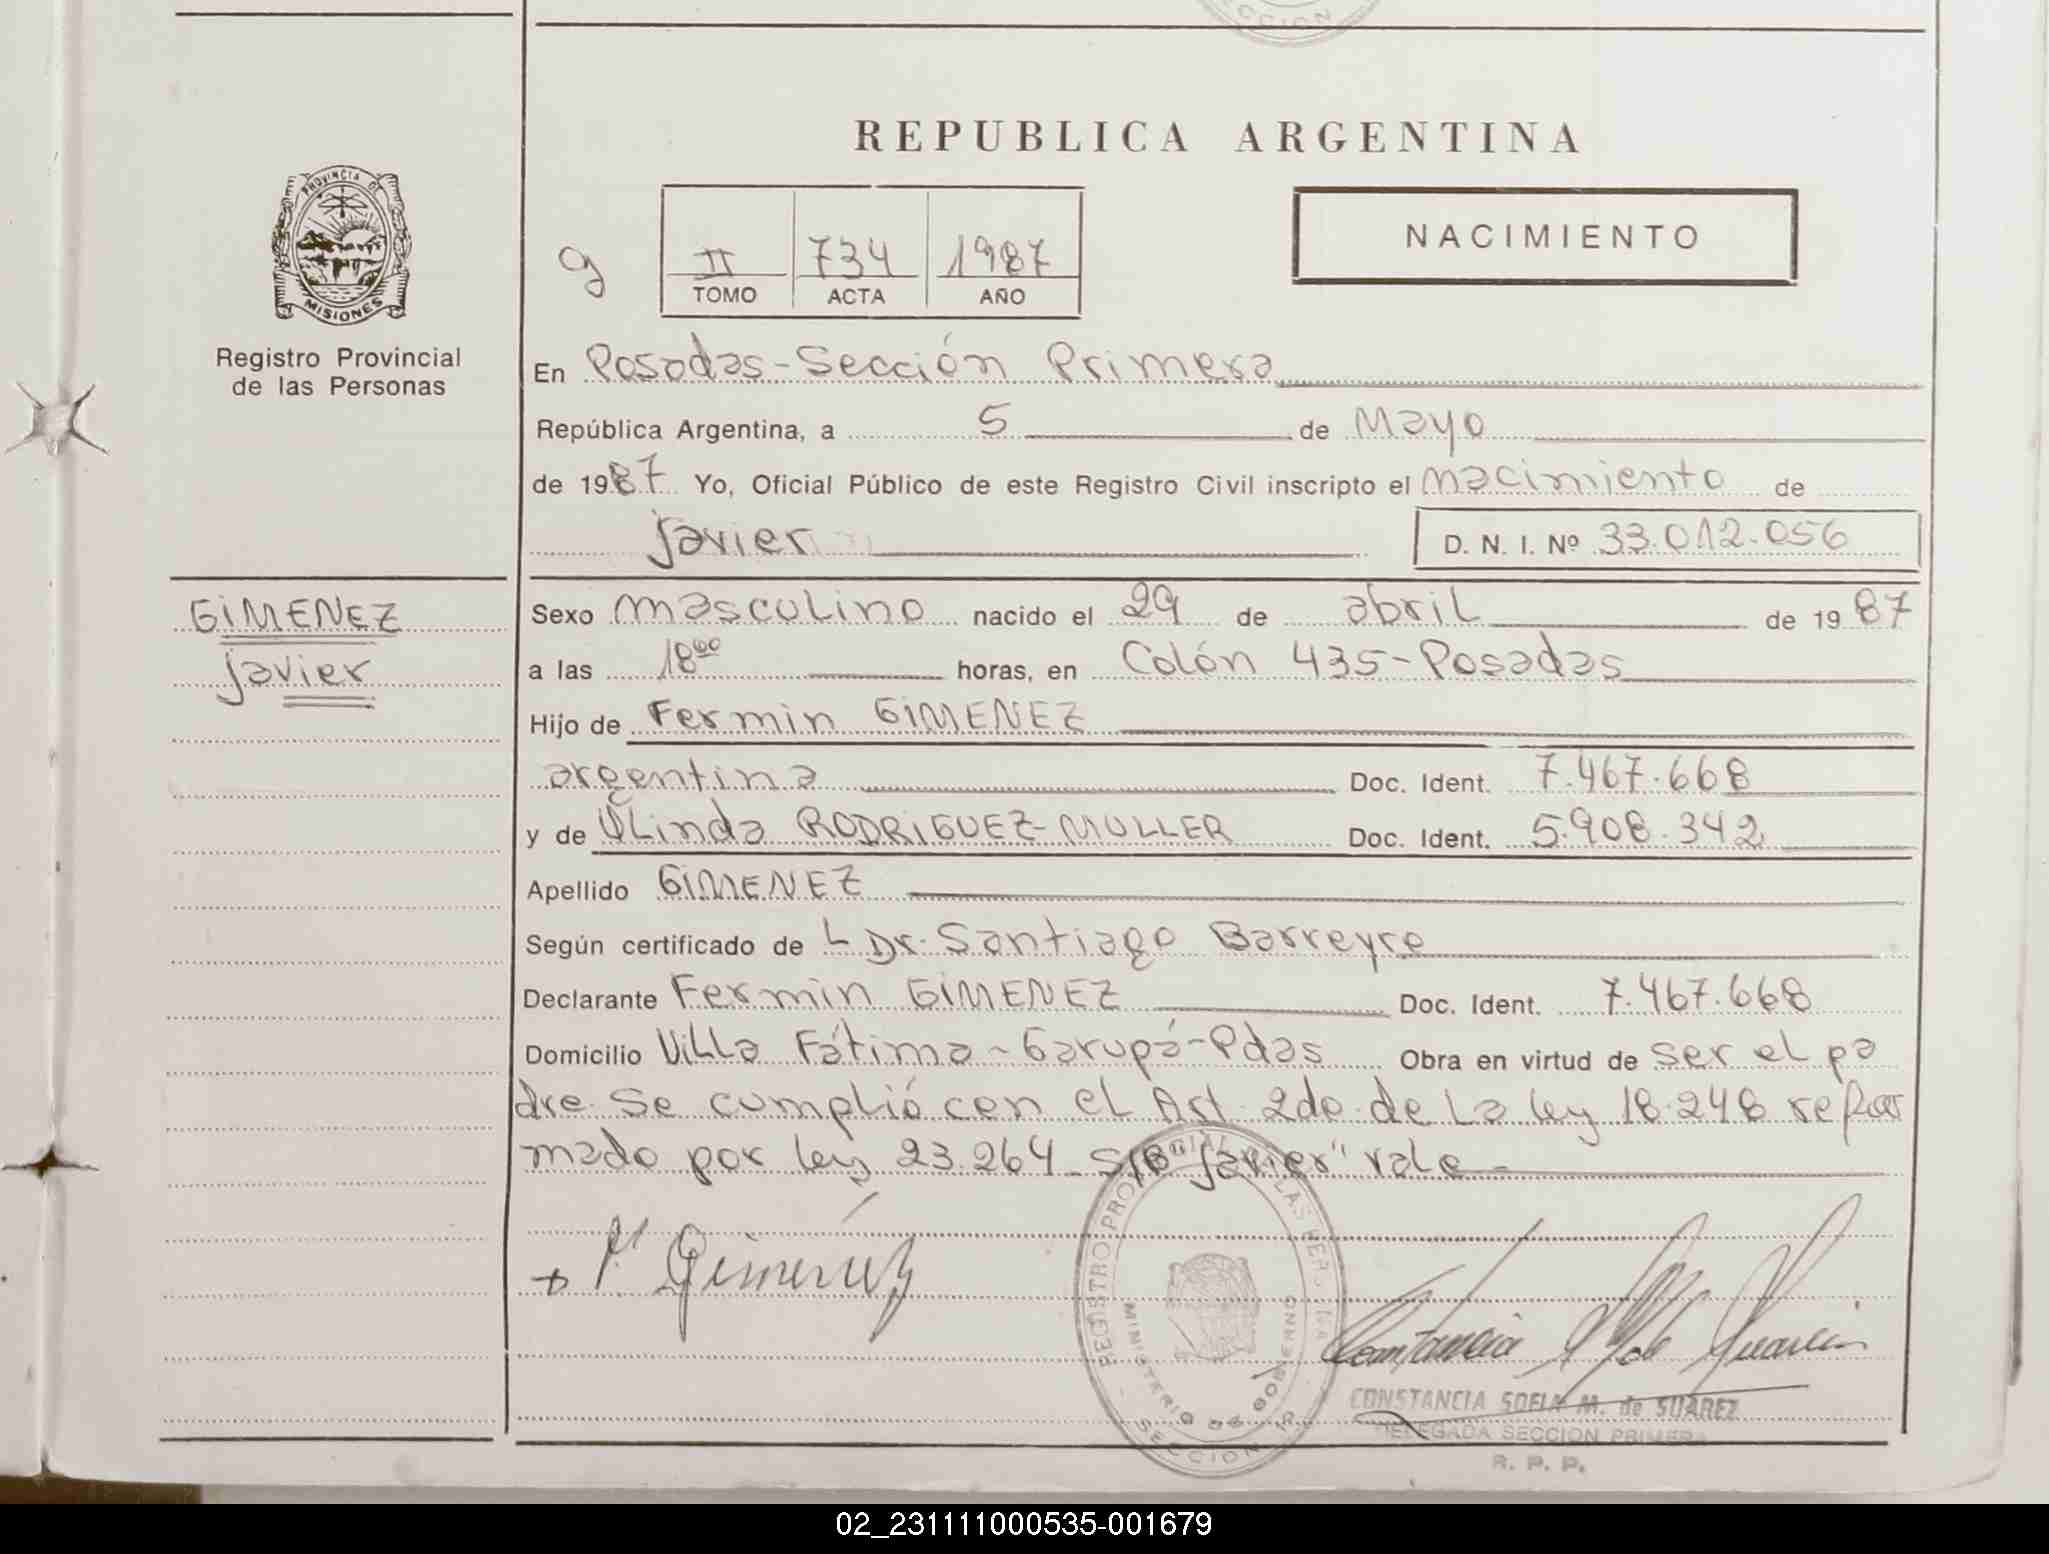 SECCION
REPUBLICA ARGENTINA
PROVINCIA DE
MISIONES
Registro Provincial
de las Personas
g
II 734 1987
TOMO ACTA AÑO
NACIMIENTO
En Posadas-Sección Primera
República Argentina, a 5 de Mayo
de 1987 Yo, Oficial Público de este Registro Civil inscripto el nacimiento de
Javier D. N. I. Nº 33.012.056
GIMENEZ
Javier
Sexo masculino nacido el 29 de abril de 1987
a las 18⁰⁰ horas, en Colón 435-Posadas
Hijo de Fermin GIMENEZ
argentina Doc. Ident. 7.467.668
y de OLinda RODRIGUEZ-MULLER Doc. Ident. 5.908.342
Apellido GIMENEZ
Según certificado de L Dr. Santiago Barreyre
Declarante Fermin GIMENEZ Doc. Ident. 7.467.668
Domicilio ViLLa Fátima-Garupá-Pdas Obra en virtud de ser el pa
dre. Se cumplió con el Art 2do. de La ley 18.248 refor
mado por ley 23.264 S/B "Javier" vale-
Gimenez
REGISTRO PROVINCIAL DE LAS PERSONAS
MINISTERIO DE GOBIERNO
SECCION 1ª
CONSTANCIA SOFIA M. de SUAREZ
DELEGADA SECCION PRIMERA
R. P. P.
02_231111000535-001679